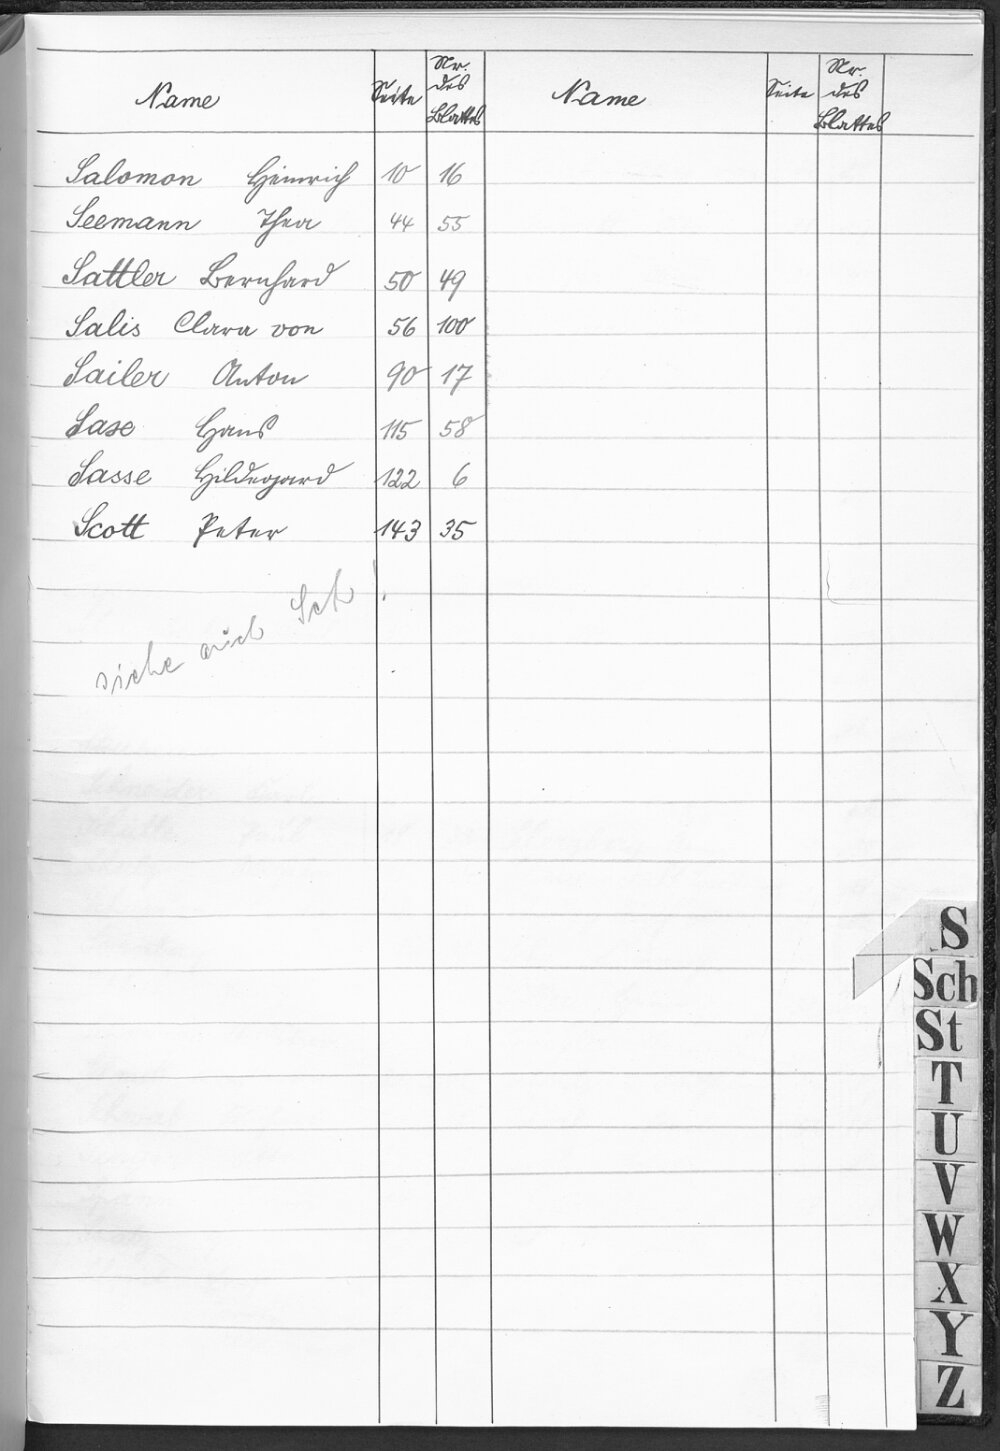 Name Seite Nr. des Blattes Name Seite Nr. des Blattes
Salomon Heinrich 10 16
Seemann Thea 44 55
Sattler Bernhard 50 49
Salis Clara von 56 100
Sailer Anton 90 17
Sase Hans 115 58
Sasse Hildegard 122 6
Scott Peter 143 35
siehe auch Sch!
S
Sch
St
T
U
V
W
X
Y
Z